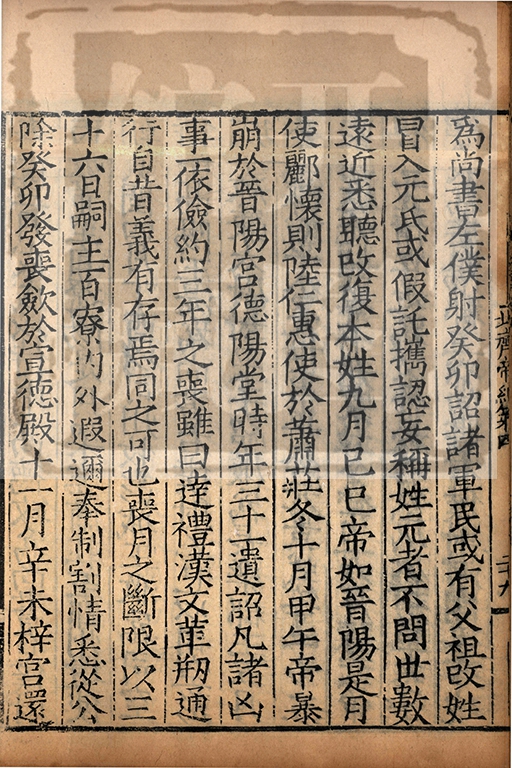 為尚書左僕射癸卯詔諸軍民或有父祖改姓
冒入元氏或假託攜認妄稱姓元者不問世數
遠近悉聽改復本姓九月己巳帝如晉陽是月
使酈懷則陸仁惠使於蕭莊冬十月甲午帝暴
崩於晉陽宮德陽堂時年三十一遺詔凡諸凶
事一依儉約三年之喪雖曰達禮漢文革刱通
行自昔義有存焉同之可也喪月之斷限以三
十六日嗣主百寮內外遐邇奉制割情悉從公
除癸卯發喪斂於宣德殿十一月辛未梓宮還
北齊帝紀第四
二十九